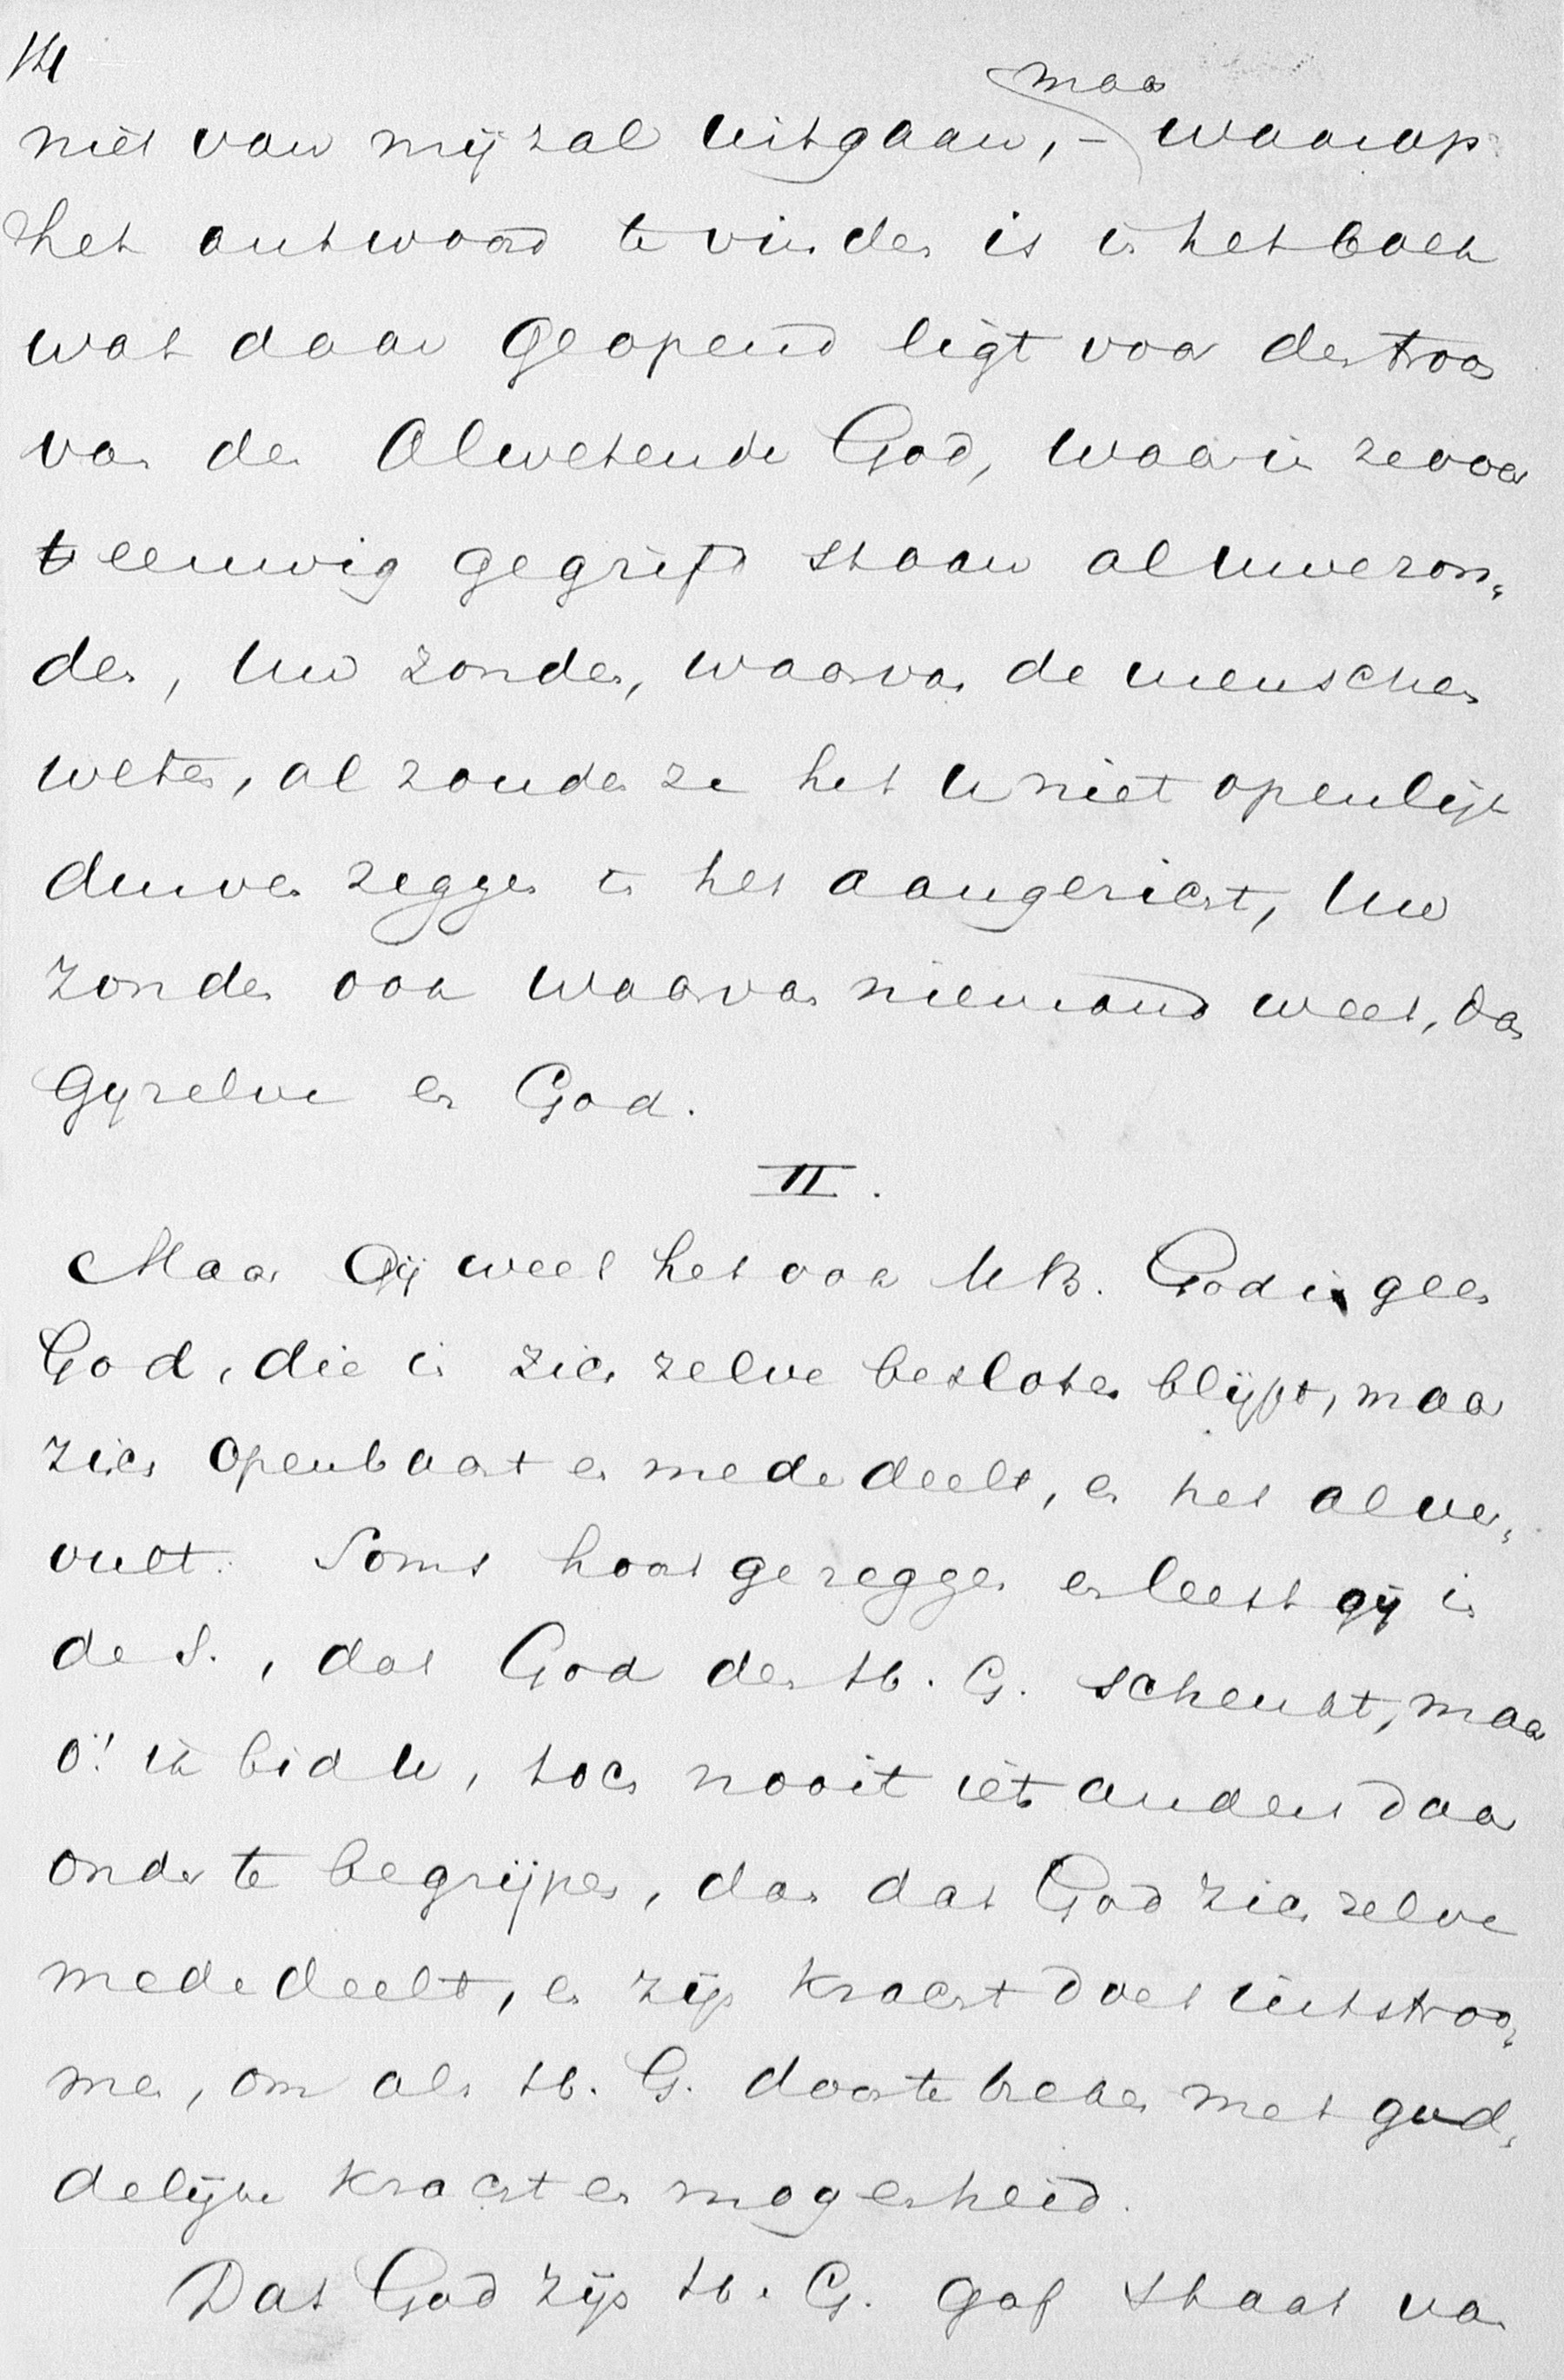 14
maar
niet van mij zal uitgaan, – waarop
het antwoord te vinden is in het boek
wat daar geopend ligt voor den troon
van den Alwetenden God, waarin ze voor
eeuwig gegrift staan al uwe zon„
den, Uw zonden, waarvan de menschen
weten, al zouden ze het U niet openlijk
durven zeggen in het aangezicht, Uw
zonden ook waarvan niemand weet, dan
Gij zelve en God.
II.
Maar Gij weet het ook M B. God is geen
God, die in zich zelve besloten blijft, maar
zich openbaart en mededeelt, en het al ver„
vult. Soms hoort ge zeggen en leest gij in
de S., dat God den H. G. schenkt, maar
o! ik bid U, toch nooit iets anders daar
onder te begrijpen, dan dat God zich zelve
mededeelt, en zijn kracht doet uitstroo„
men, om als H. G. door te breken met god„
delijke kracht en mogenheid.
Dat God zijn H. G. gaf staat van